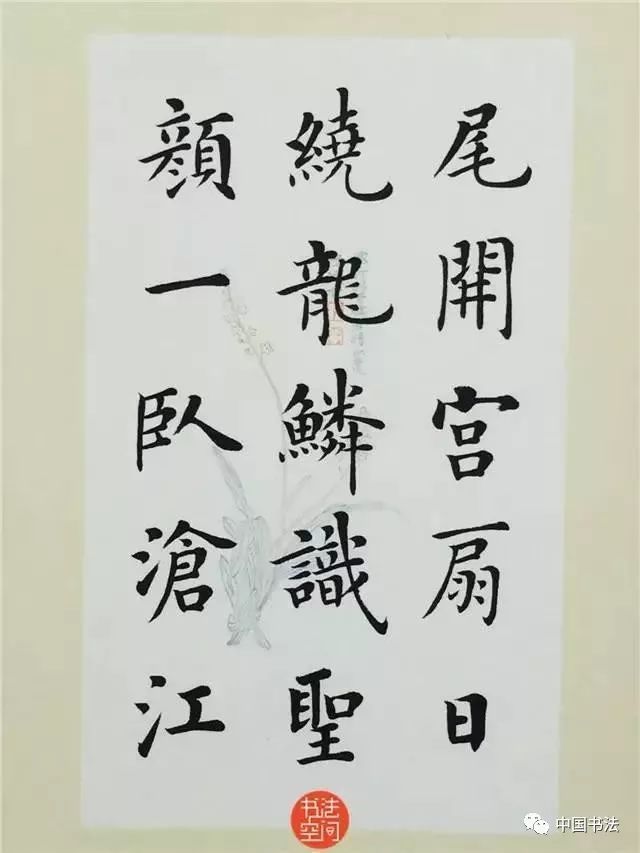 尾開宮扇日
繞龍鱗識聖
顏一臥滄江
书法空间
中国书法